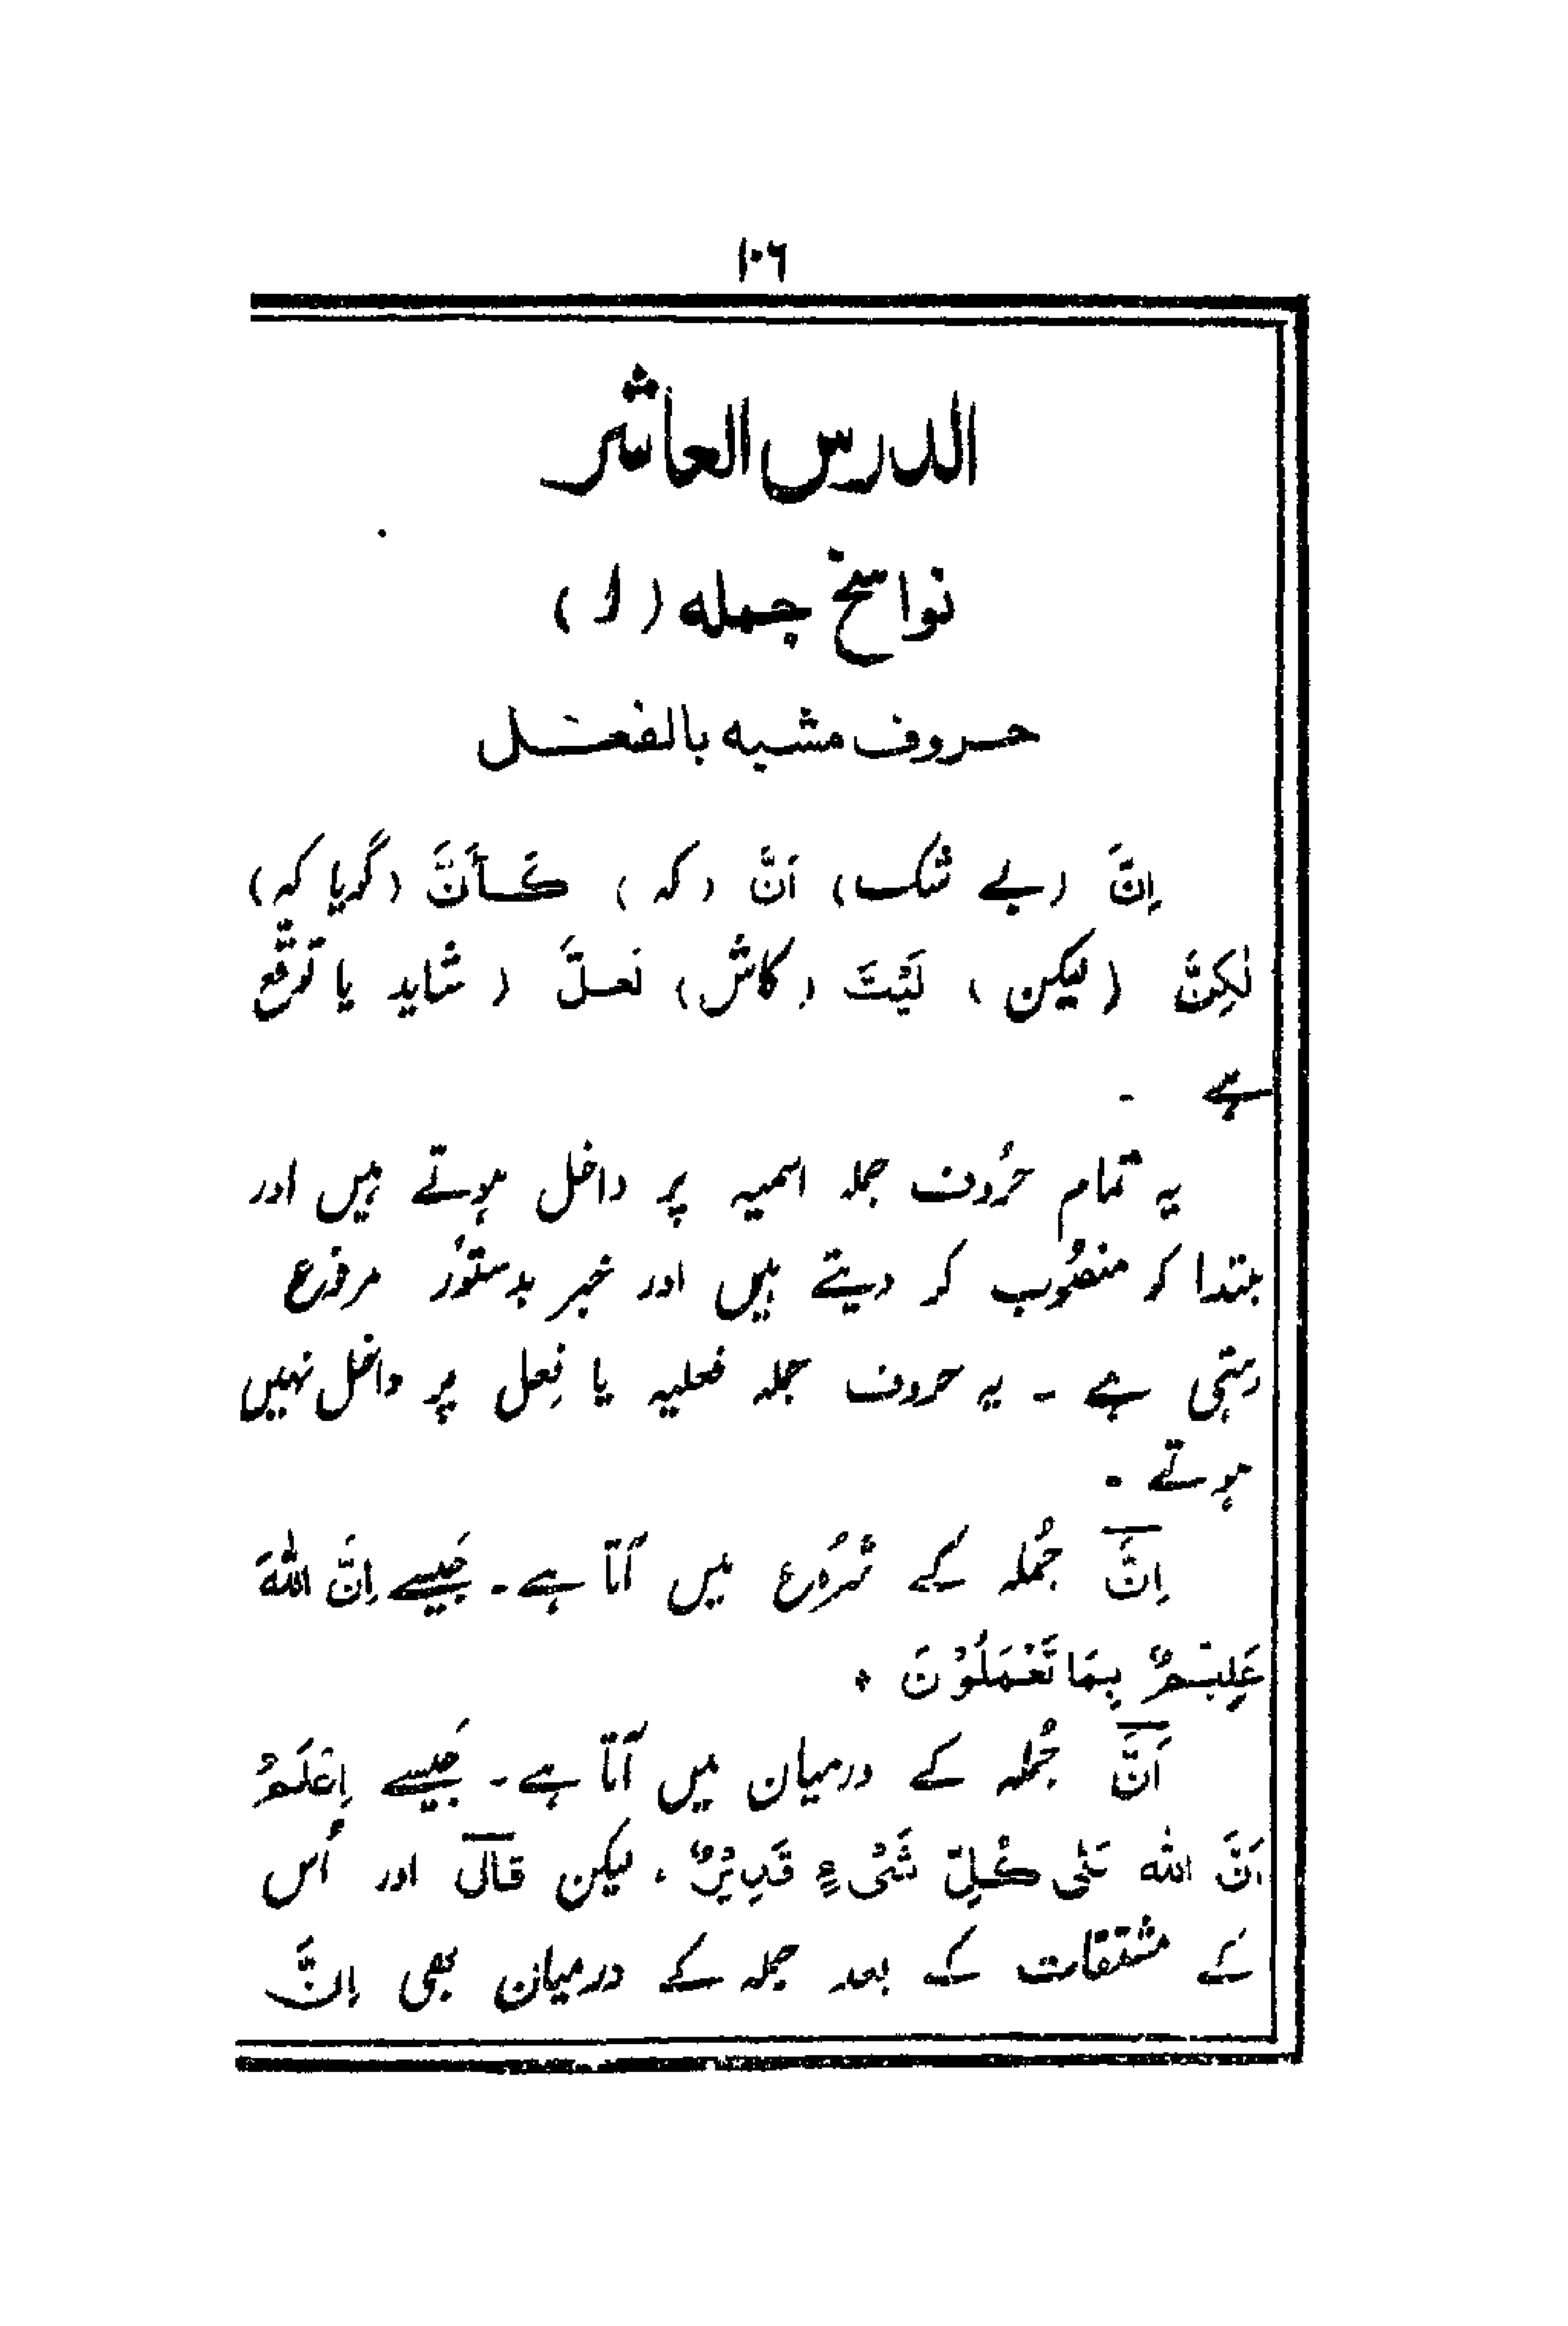 ۱۰۶
الدرس العاشر
نواسخ جمله (۱)
حروف مشبه بالفعل
اِنَّ (بے شک) اَنَّ (کہ) کَأَنَّ (گویا کہ)
لٰکِنَّ (لیکن) لَیْتَ (کاش) لَعَلَّ (شاید یا توقّع
ہے ۔
یہ تمام حرُوف جملہ اسمیہ پر داخل ہوتے ہیں اور
مبتدا کو منصُوب کر دیتے ہیں اور خبر بدستُور مرفوع
رہتی ہے ۔ یہ حروف جملہ فعلیہ یا فِعل پر داخل نہیں
ہوتے ۔
اِنَّ جُملہ کے شرُوع میں آتا ہے ۔ جَیسے اِنَّ اللّٰهَ
عَلِیْمٌ بِمَا تَعْمَلُوْنَ ٠
اَنَّ جُملہ کے درمیان میں آتا ہے ۔ جَیسے اِعْلَمْ
اَنَّ اللّٰه عَلٰی کُلِّ شَیْءٍ قَدِیْرٌ ، لیکن قَالَ اور اُس
کے مشتقات کے بعد جملہ کے درمیان بھی اِنَّ